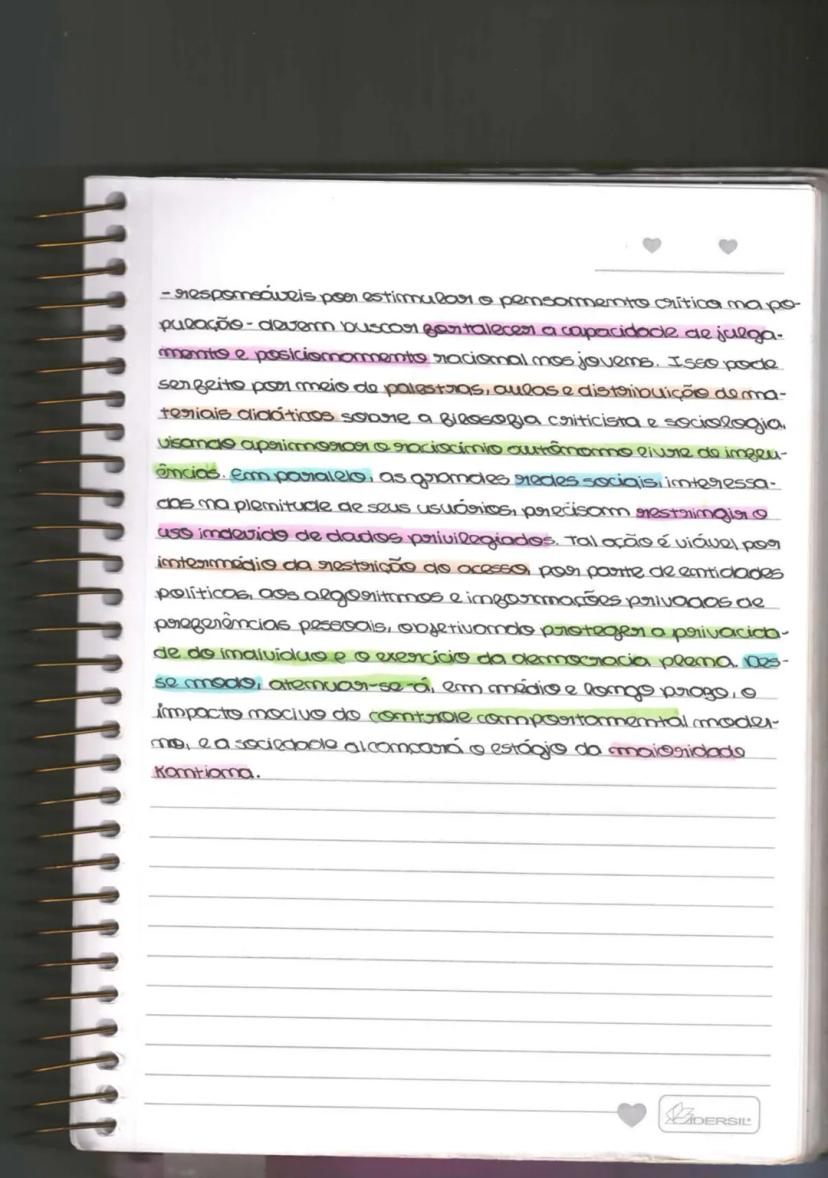 - responsáveis por estimular o pensamento crítico na po-
pulação - devem buscar fortalecer a capacidade de julga-
mento e posicionamento racional nos jovens. Isso pode
ser feito por meio de palestras, aulas e distribuição de ma-
teriais didáticos sobre a filosofia criticista e sociologia,
visando aprimorar o raciocínio autônomo livre de influ-
ências. Em paralelo, as grandes redes sociais, interessa-
das na plenitude de seus usuários, precisam restringir o
uso indevido de dados privilegiados. Tal ação é viável por
intermédio da restrição do acesso, por parte de entidades
políticas, aos algoritmos e informações privadas de
preferências pessoais, objetivando proteger a privacida-
de do indivíduo e o exercício da democracia plena. Des-
se modo, atenuar-se-á, em médio e longo prazo, o
impacto nocivo do controle comportamental moder-
no, e a sociedade alcançará o estágio da maioridade
Kantiana.
IDERSIL